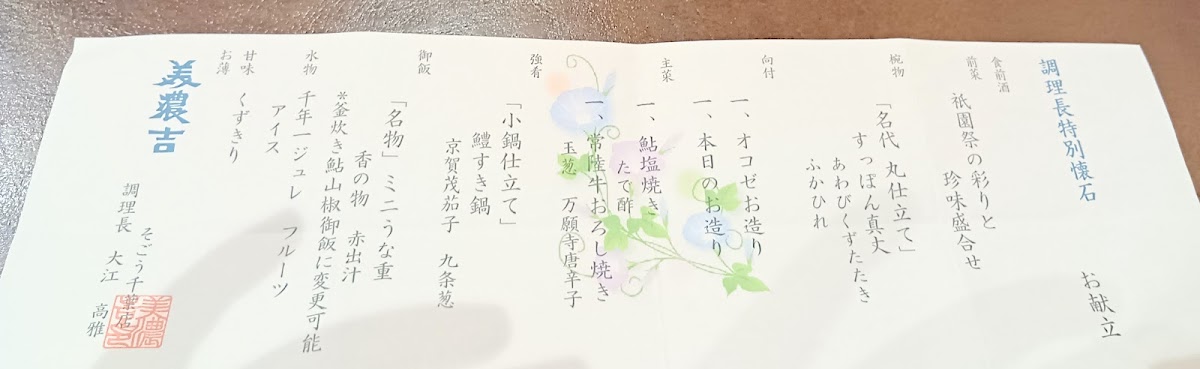 調理長特別懐石　お献立
食前酒
前菜
祇園祭の彩りと
珍味盛合せ
椀物
「名代　丸仕立て」
すっぽん真丈
あわびくずたたき
ふかひれ
向付
一、オコゼお造り
一、本日のお造り
主菜
一、鮎塩焼き
たで酢
一、常陸牛おろし焼き
玉葱　万願寺唐辛子
強肴
「小鍋仕立て」
鱧すき鍋
京賀茂茄子　九条葱
御飯
「名物」ミニうな重
香の物　赤出汁
*釜炊き鮎山椒御飯に変更可能
水物
千年一ジュレ　フルーツ
アイス
甘味
くずきり
お薄
美濃吉
そごう千葉店
調理長　大江　高雅